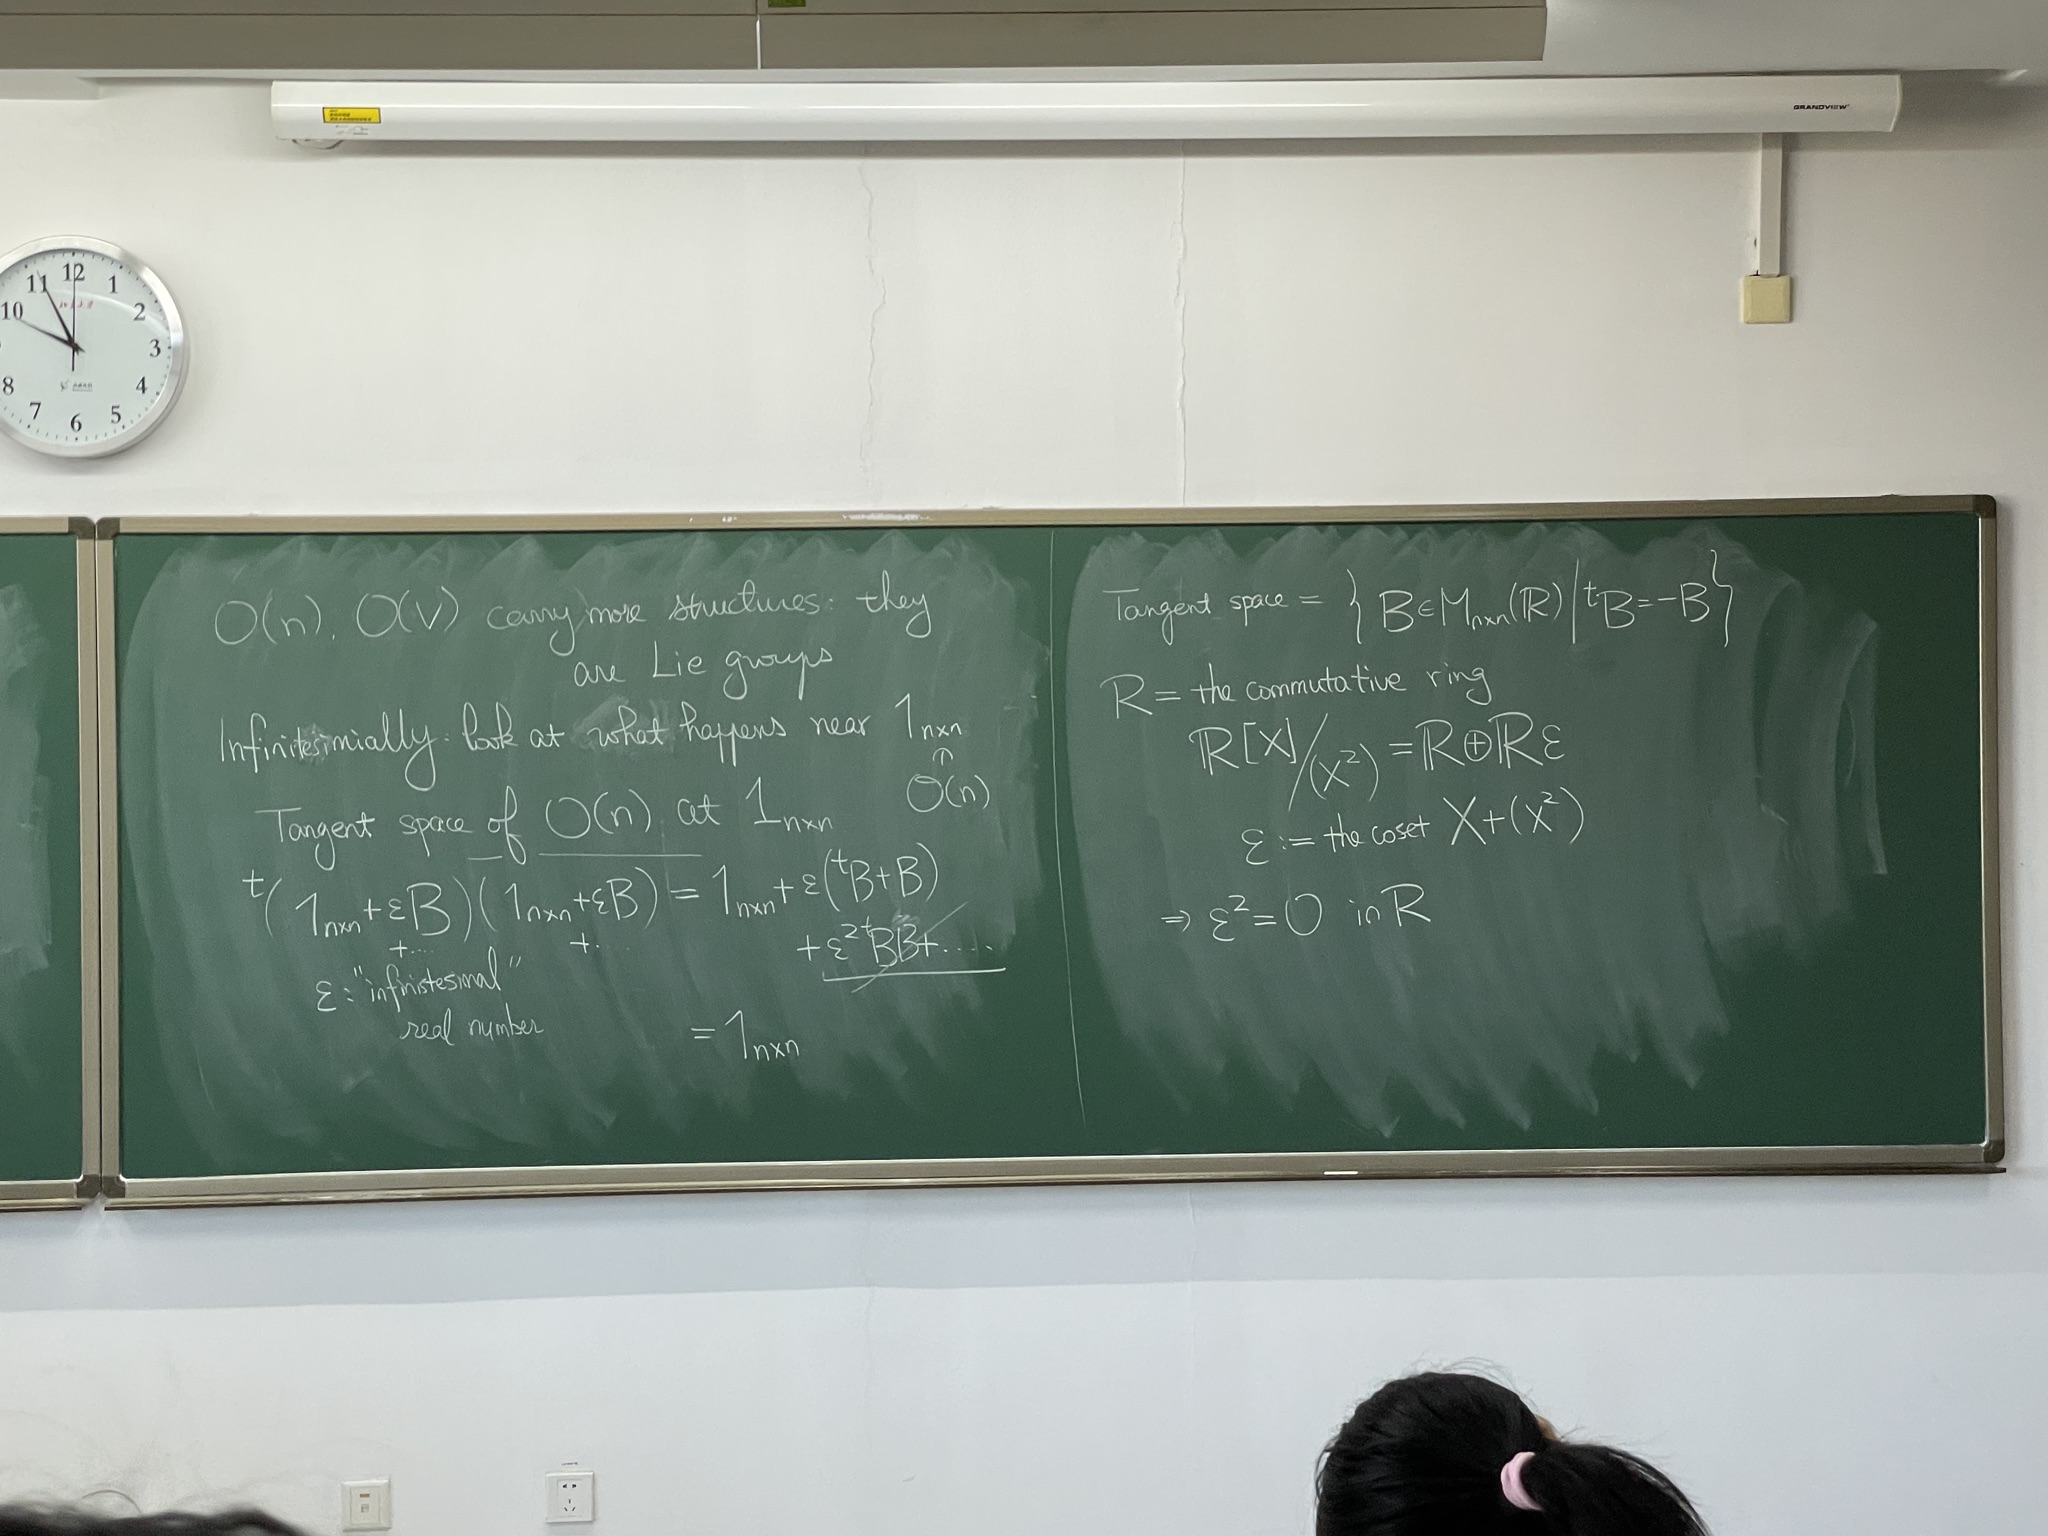 GRANDVIEW
12
11
1
10
2
3
8
4
7
5
6
O(n), O(V) carry more structures: they
are Lie groups
Infinitesimially: look at what happens near 1ₙₓₙ
∩
O(n)
Tangent space of O(n) at 1ₙₓₙ
ᵗ(1ₙₓₙ+εB)(1ₙₓₙ+εB) = 1ₙₓₙ + ε(ᵗB+B)
+.... +.... +ε² ᵗBB+....
ε: "infinistesimal"
real number
= 1ₙₓₙ
Tangent space = { B∈Mₙₓₙ(ℝ) | ᵗB=-B }
R = the commutative ring
ℝ[X]/(X²) = ℝ⊕ℝε
ε := the coset X+(X²)
⇒ ε²=0 in R